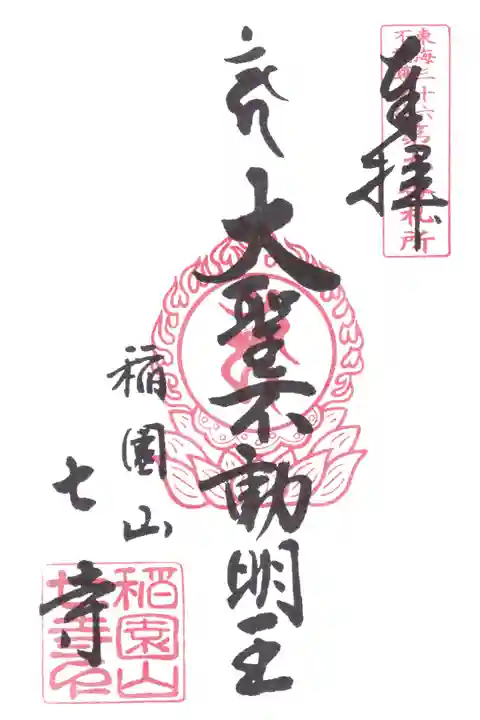 東海三十六
不動
札所
奉拝
大聖不動明王
稲園山
七寺
稲園山
七寺印